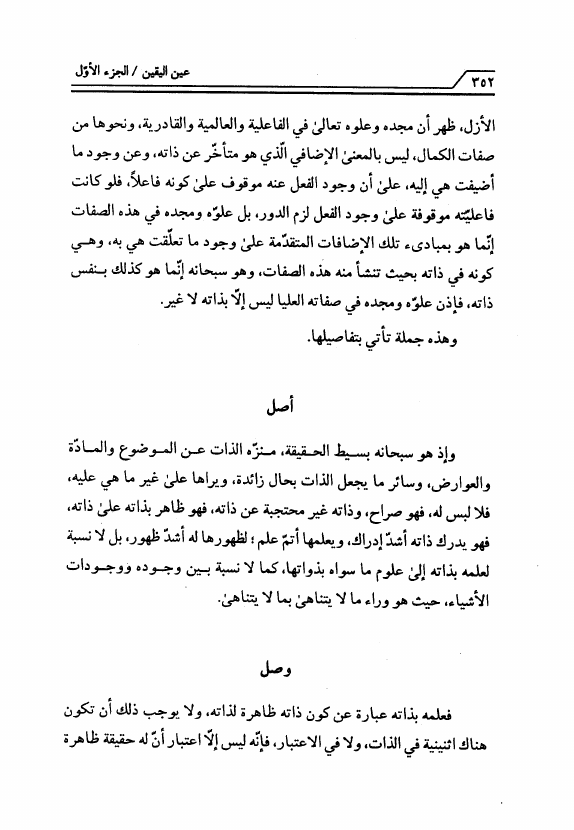 عين اليقين / الجزء الأوّل
٣٥٢
الأزل، ظهر أن مجده وعلوه تعالىٰ في الفاعلية والعالمية والقادرية، ونحوها من
صفات الكمال، ليس بالمعنىٰ الإضافي الّذي هو متأخّر عن ذاته، وعن وجود ما
أضيفت هي إليه، علىٰ أن وجود الفعل عنه موقوف علىٰ كونه فاعلاً، فلو كانت
فاعليّته موقوفة علىٰ وجود الفعل لزم الدور، بل علوّه ومجده في هذه الصفات
إنّما هو بمبادىء تلك الإضافات المتقدّمة علىٰ وجود ما تعلّقت هي به، وهـي
كونه في ذاته بحيث تنشأ منه هذه الصفات، وهو سبحانه إنّما هو كذلك بـنفس
ذاته، فإذن علوّه ومجده في صفاته العليا ليس إلّا بذاته لا غير.
وهذه جملة تأتي بتفاصيلها.
أصل
وإذ هو سبحانه بسـيط الحـقيقة، مـنزّه الذات عـن المـوضوع والمـادّة
والعوارض، وسائر ما يجعل الذات بحال زائدة، ويراها علىٰ غير ما هي عليه،
فلا لبس له، فهو صراح، وذاته غير محتجبة عن ذاته، فهو ظاهر بذاته علىٰ ذاته،
فهو يدرك ذاته أشدّ إدراك، ويعلمها أتمّ علم؛ لظهورها له أشدّ ظهور، بل لا نسبة
لعلمه بذاته إلىٰ علوم ما سواه بذواتها، كما لا نسبة بـين وجـوده ووجـودات
الأشياء، حيث هو وراء ما لا يتناهىٰ بما لا يتناهىٰ.
وصل
فعلمه بذاته عبارة عن كون ذاته ظاهرة لذاته، ولا يوجب ذلك أن تكون
هناك اثنينية في الذات، ولا في الاعتبار، فإنّه ليس إلّا اعتبار أنّ له حقيقة ظاهرة